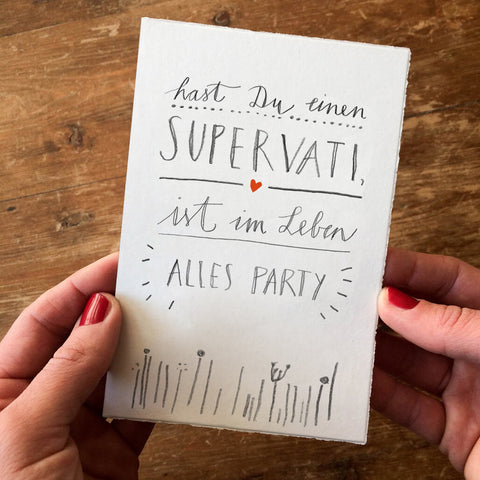 hast Du einen
SUPERVATI,
ist im Leben
ALLES PARTY